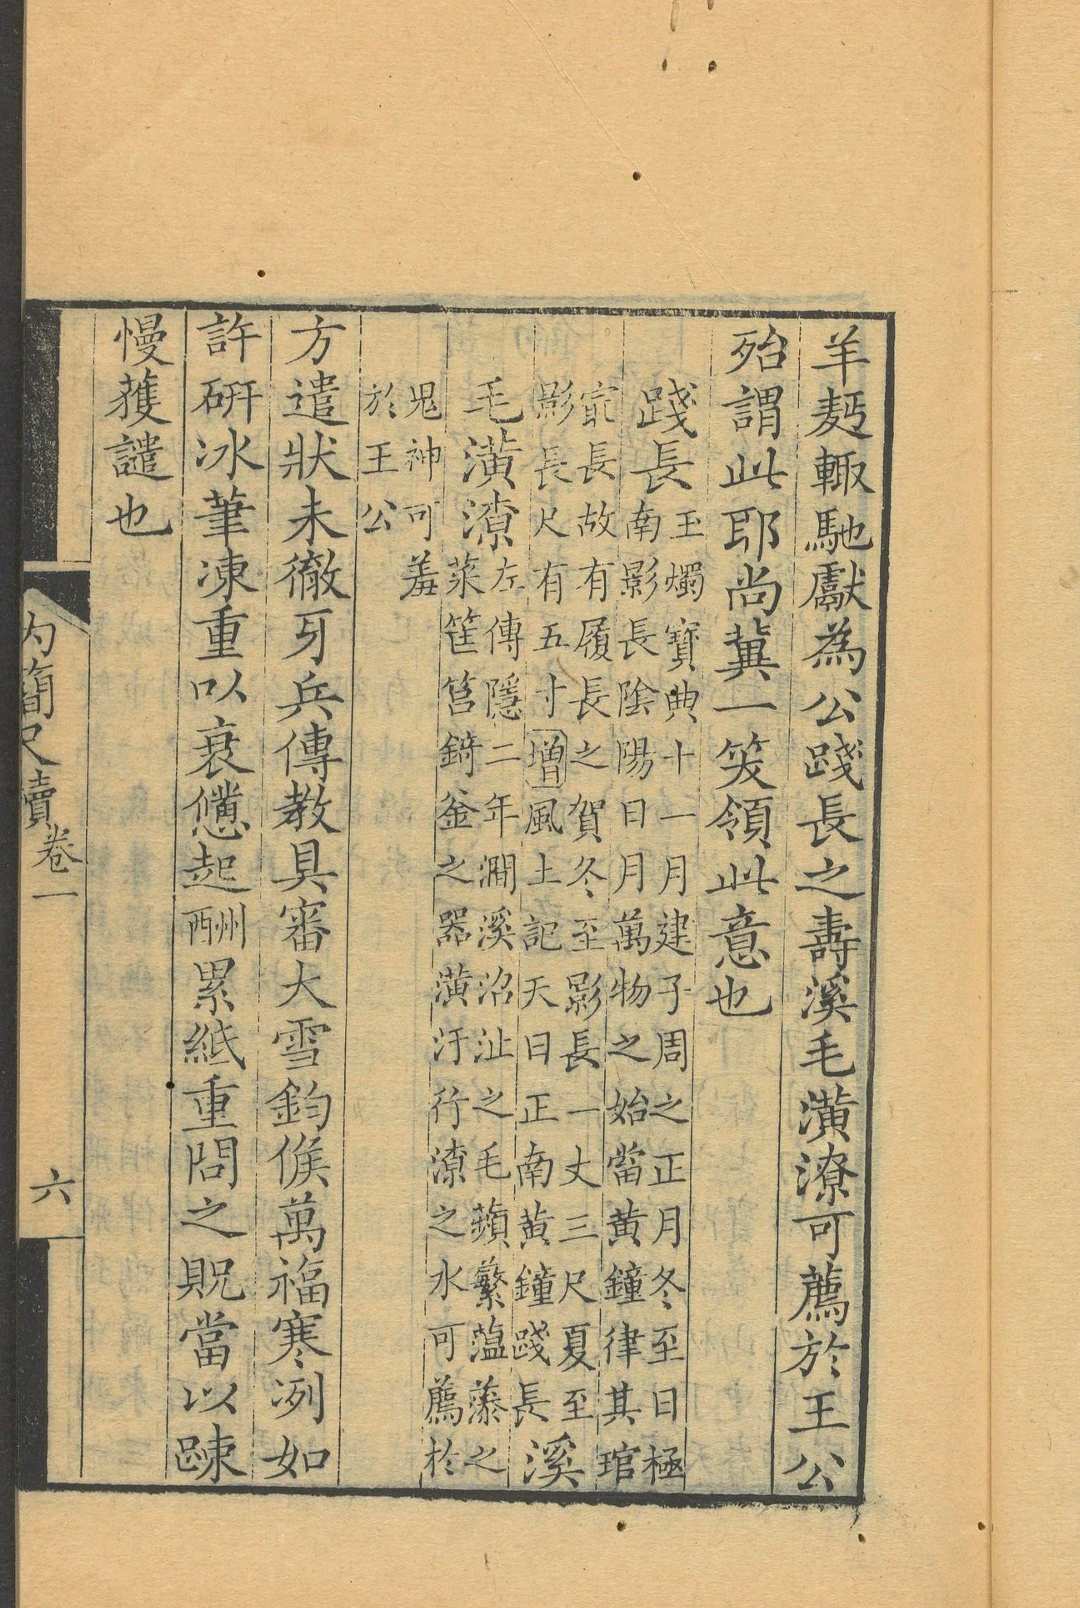 羊麪輙馳獻為公踐長之壽溪毛潢潦可薦於王公
殆謂此耶尚冀一笑領此意也
踐長
玉燭寶典十一月建子周之正月冬至日極
南影長陰陽日月萬物之始當黃鐘律其琯
㝡長故有履長之賀冬至影長一丈三尺夏至
影長尺有五寸增風土記天日正南黃鐘踐長
溪
毛潢潦
左傳隱二年澗溪沼沚之毛蘋蘩薀藻之
菜筐筥錡釜之器潢汙行潦之水可薦於
鬼神可羞
於王公
方遣狀未徹牙兵傳教具審大雪鈞候萬福寒冽如
許硏冰筆凍重以衰憊起酬累紙重問之貺當以踈
慢獲譴也
內簡尺牘卷一
六